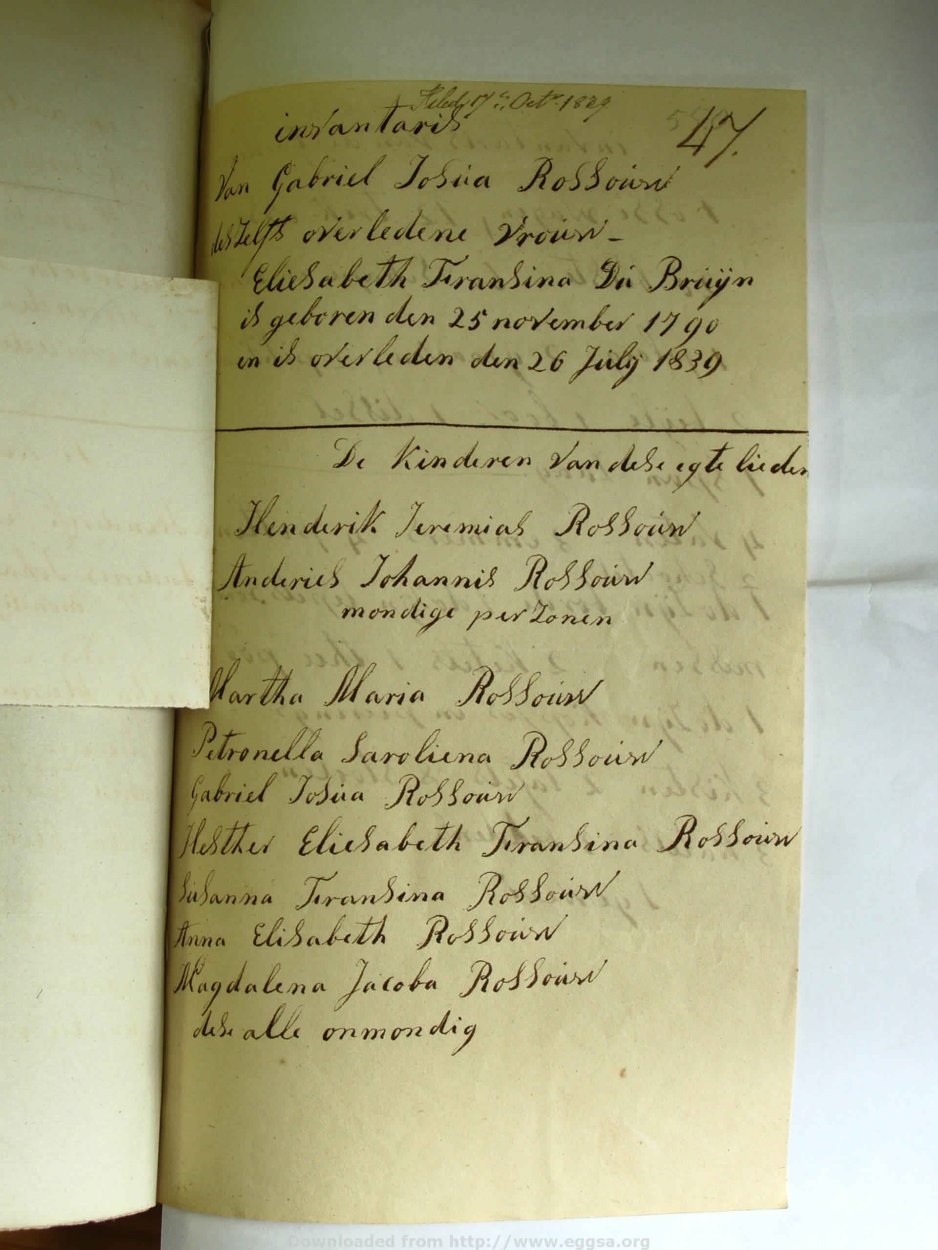 Filed 17th Octr 1839
invantaris
47.
Van Gabriel Josua Rossouw
deszelfs overledene Vrouw -
Eliesabeth Fransina Du Bruÿn
is geboren den 25 november 1790
en is overleden den 26 Julÿ 1839
De Kinderen van dese egte lieden
Henderik Jeremias Rossouw
Anderies Johannis Rossouw
mondige perzonen
Martha Maria Rossouw
Petronella Saroliena Rossouw
Gabriel Josua Rossouw
Hesther Eliesabeth Fransina Rossouw
Susanna Fransina Rossouw
Anna Elisabeth Rossouw
Magdalena Jacoba Rossouw
dese alle onmondig
Downloaded from http://www.eggsa.org